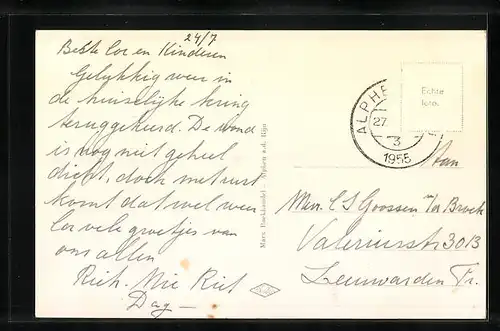 24/7
Beste Cor en Kinderen
Gelukkig weer in
de huiselijke kring
teruggekeerd. De wond
is nog niet geheel
dicht, doch met rust
komt dat wel weer
Cor vele groetjes van
ons allen
Rich. Mie Riet
Dag —
Marx Boekhandel - Alphen a.d. Rijn
Echte
foto.
ALPHE
27
3
1955
Aan
Mevr. C S Goossen v/d Broek
Valeriusstr 30 B
Leeuwarden Fr.